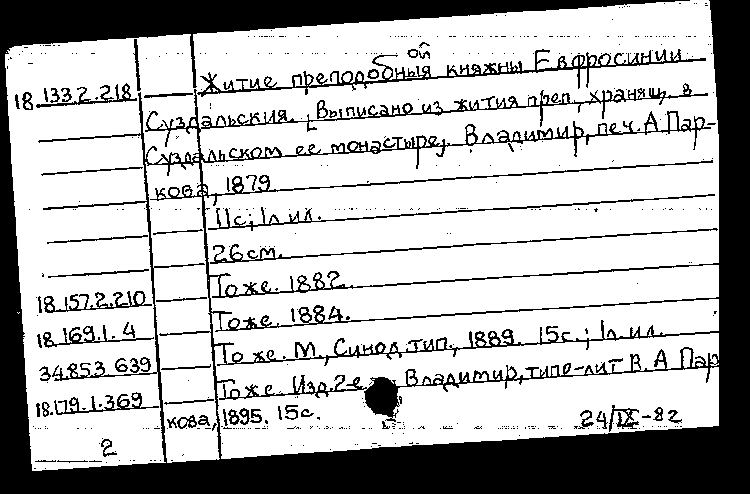 18.133.2.218 Житие преподобныя ой княжны Евфросинии
Суздальския. [Выписано из жития преп., хранящ. в
Суздальском ее монастыре]. Владимир, печ. А. Пар-
кова, 1879
11с; 1л ил.
26 см.
18.157.2.210 То же. 1882.
18.169.1.4 То же. 1884.
34.85.3.639 То же. М., Синод. тип., 1889. 15с.; 1л ил.
18.179.1.369 То же. Изд. 2-е Владимир, типо-лит В. А Пар
кова, 1895. 15с.
2 24/IX-82